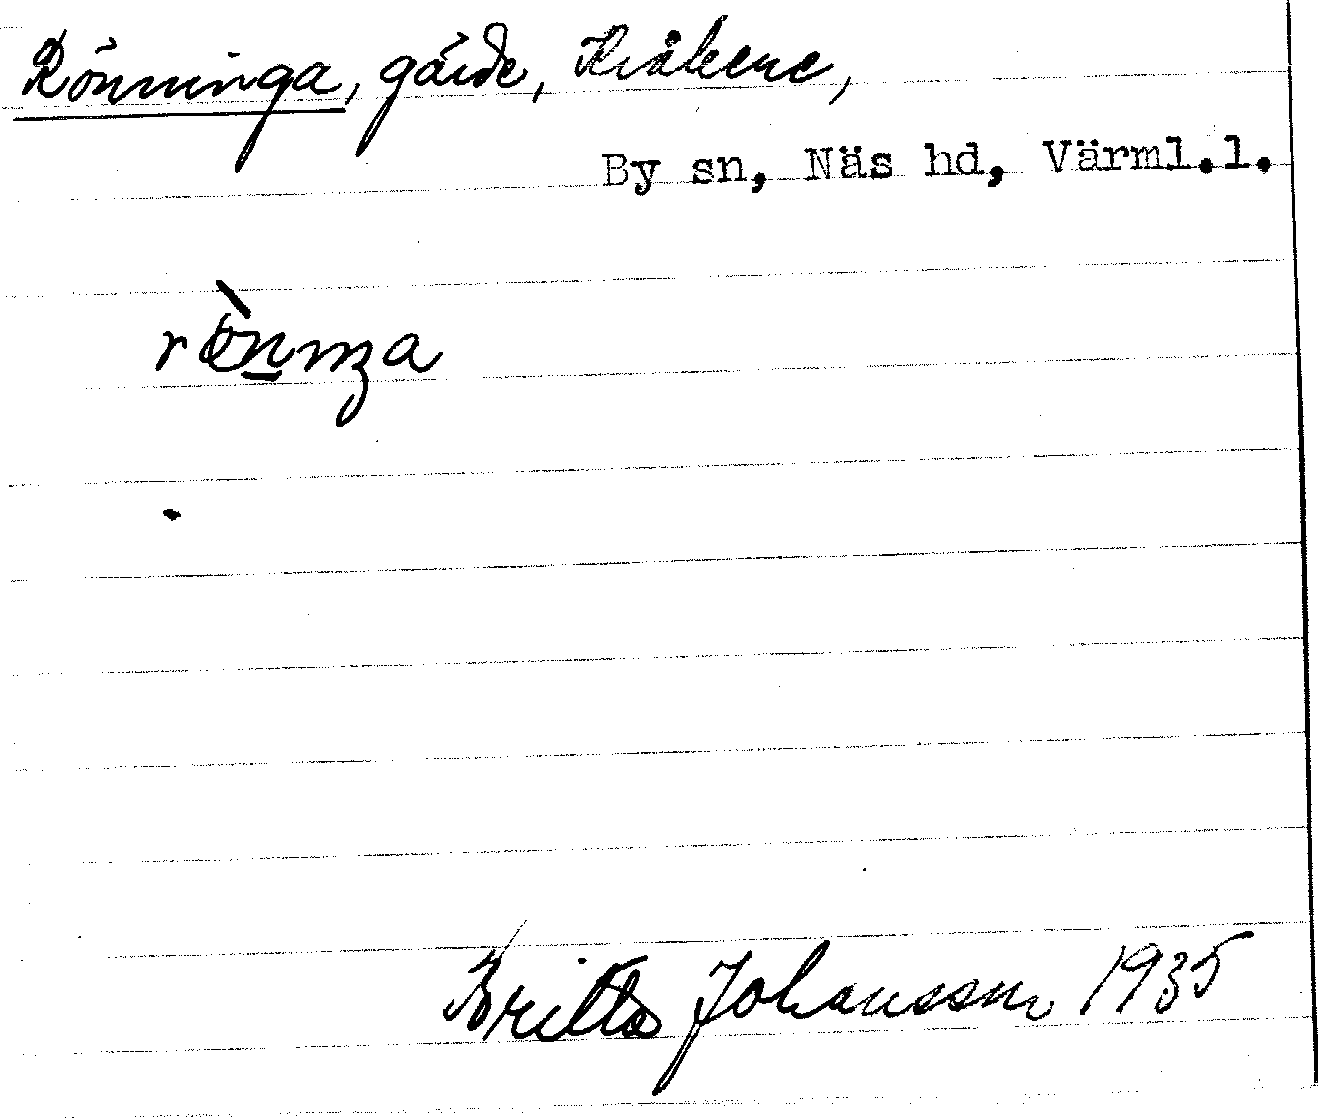 Rönninga, gärde, Kråkene,
By sn, Näs hd, Värml.l.
Britta Johansson 1935